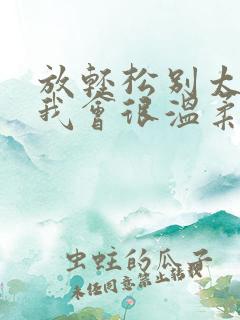 放轻松别太
我会很温柔
虫蛀的瓜子
未经同意禁止转载